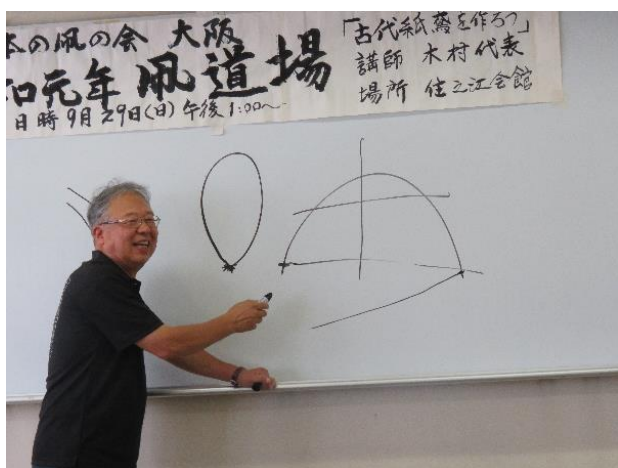 本の凧の会 大阪
和元年 凧道場
日時 9月29日(日) 午後1:00〜
「古代紙鳶を作ろう」
講師 木村代表
場所 住之江会館